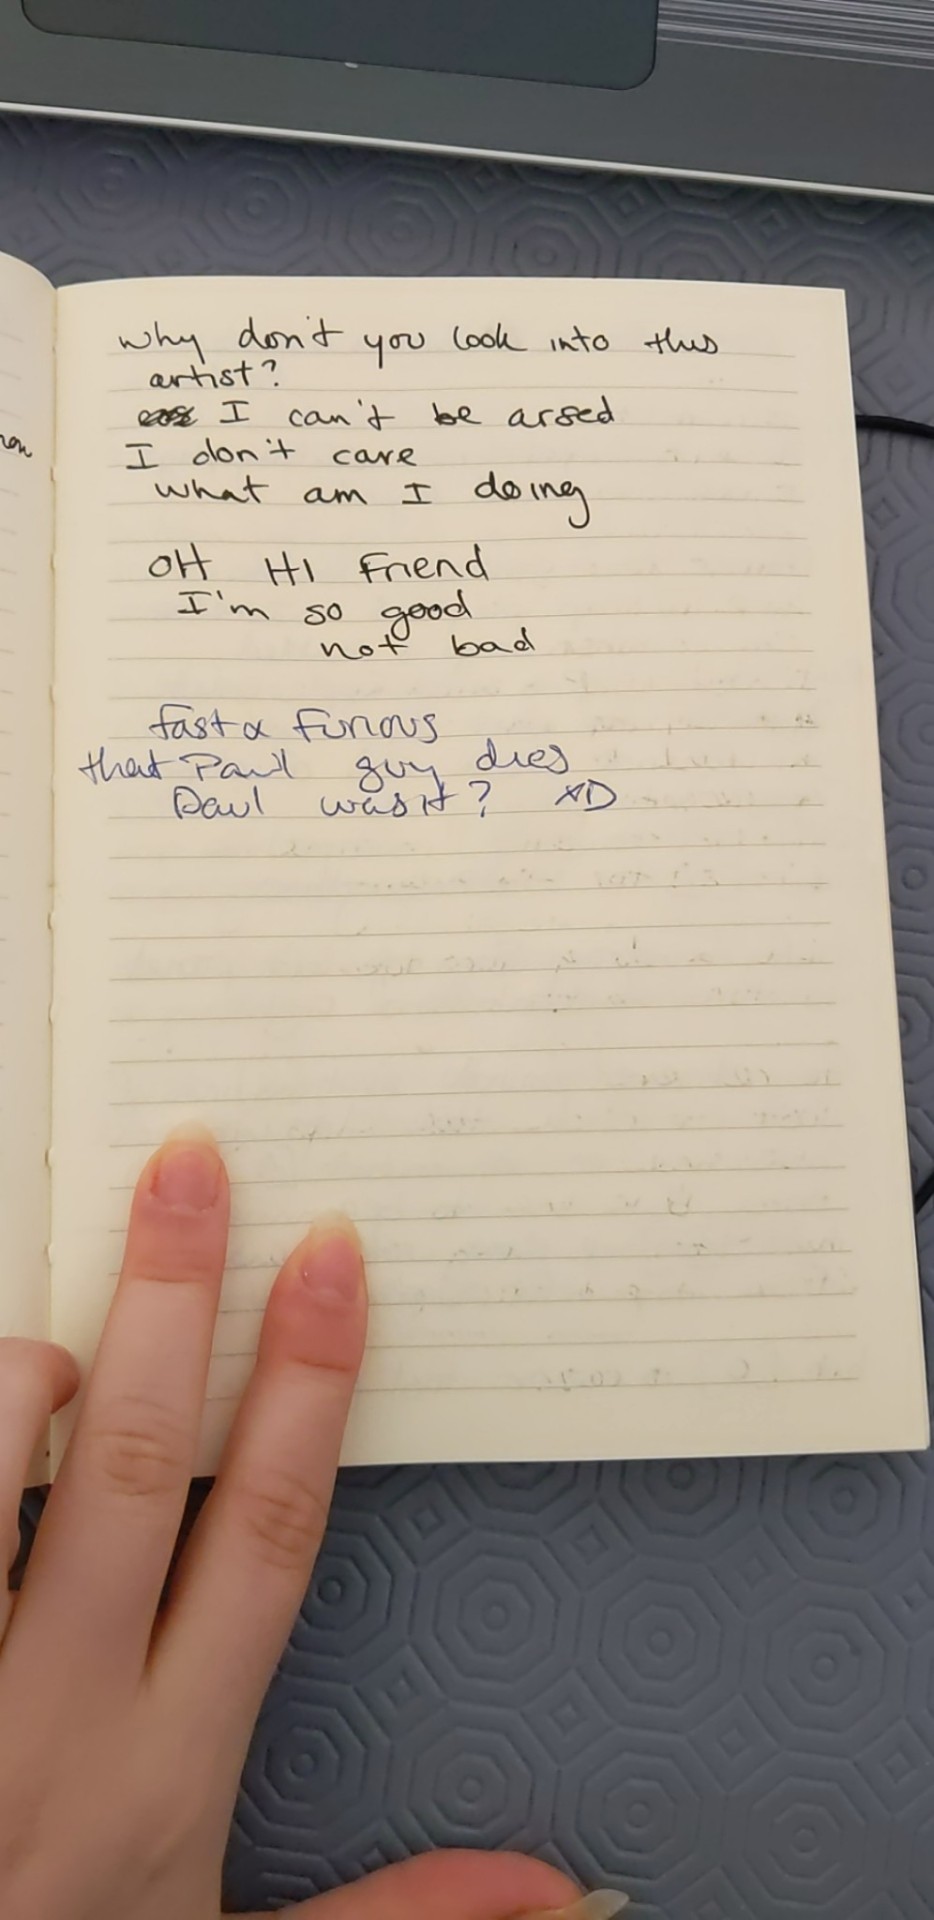 why don't you look into this
artist?
I can't be arsed
I don't care
what am I doing
OH HI Friend
I'm so good
not bad
fast & Furious
that Paul guy dies
Paul was it? XD